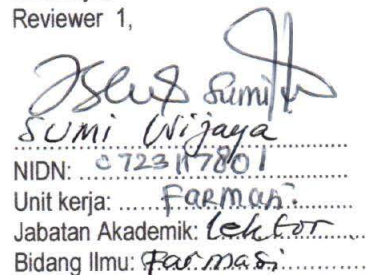 Reviewer 1,
Sumi
Sumi Wijaya
NIDN: 0723117801
Unit kerja: Farmasi
Jabatan Akademik: Lektor
Bidang Ilmu: Farmasi